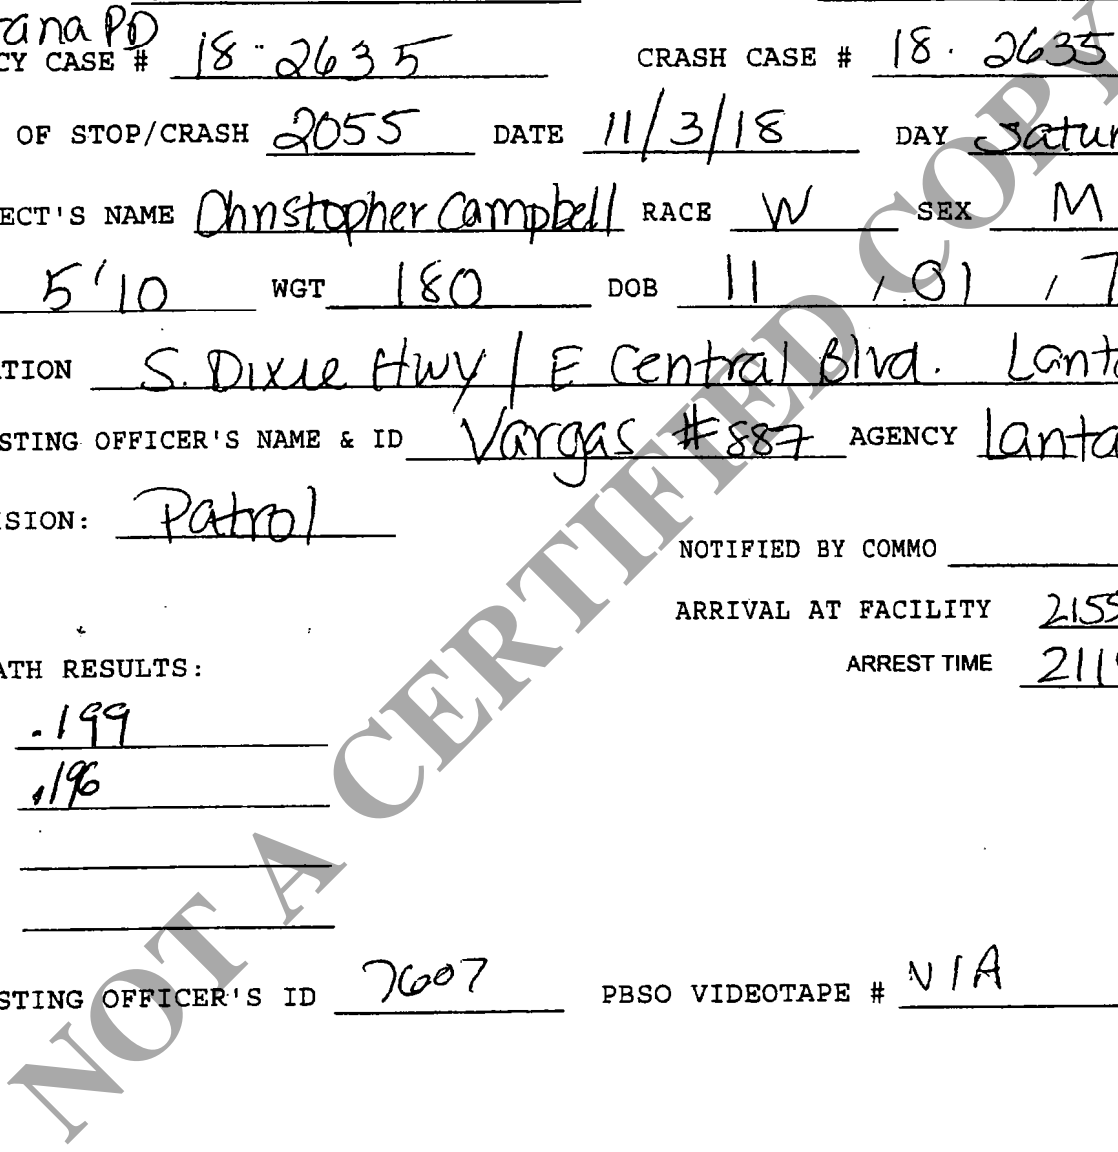 rana PD
CY CASE # 18-2635 CRASH CASE # 18-2635
OF STOP/CRASH 2055 DATE 11/3/18 DAY Satur
ECT'S NAME Christopher Campbell RACE W SEX M
5'10 WGT 180 DOB 11 / 01 / 7
TION S. Dixie Hwy / E Central Blvd. Lanta
STING OFFICER'S NAME & ID Vargas #887 AGENCY Lanta
ISION: Patrol
NOTIFIED BY COMMO
ARRIVAL AT FACILITY 2155
ARREST TIME 211
ATH RESULTS:
.199
.196
STING OFFICER'S ID 7607 PBSO VIDEOTAPE # N/A
NOT A CERTIFIED COPY